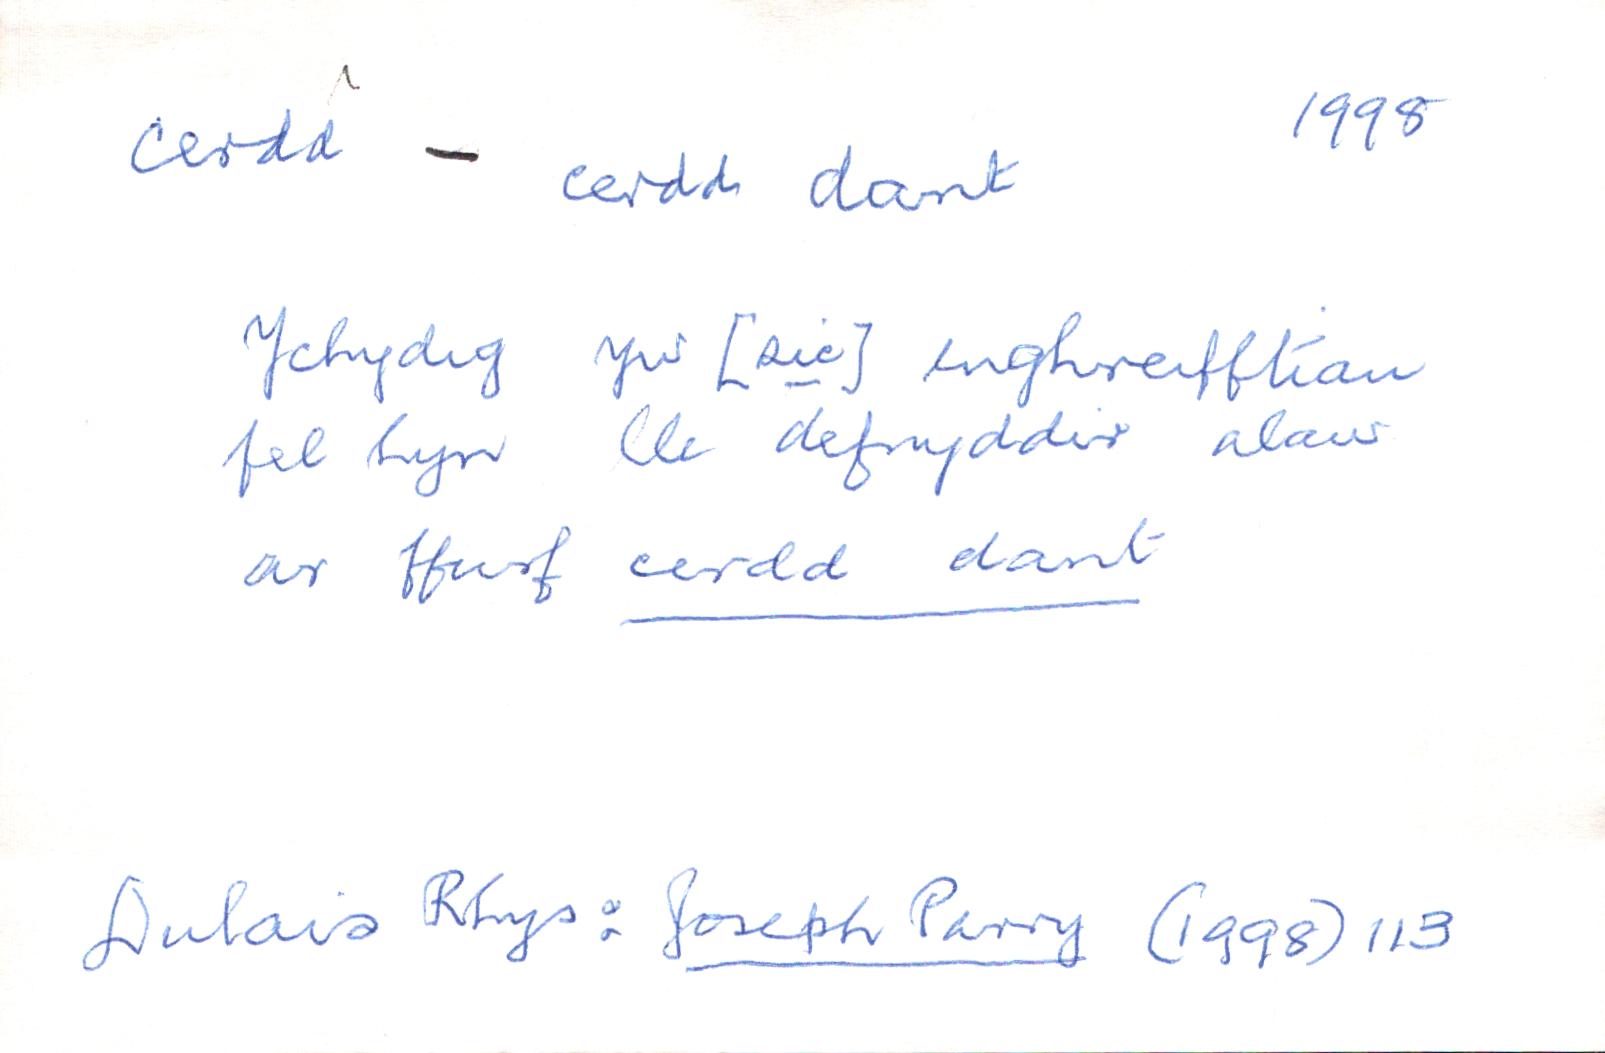 cerdd^1 — cerdd dant 1998
Ychydig yw [sic] enghreifftiau
fel hyn lle defnyddir alaw
ar ffurf cerdd dant
Dulais Rhys: Joseph Parry (1998) 113